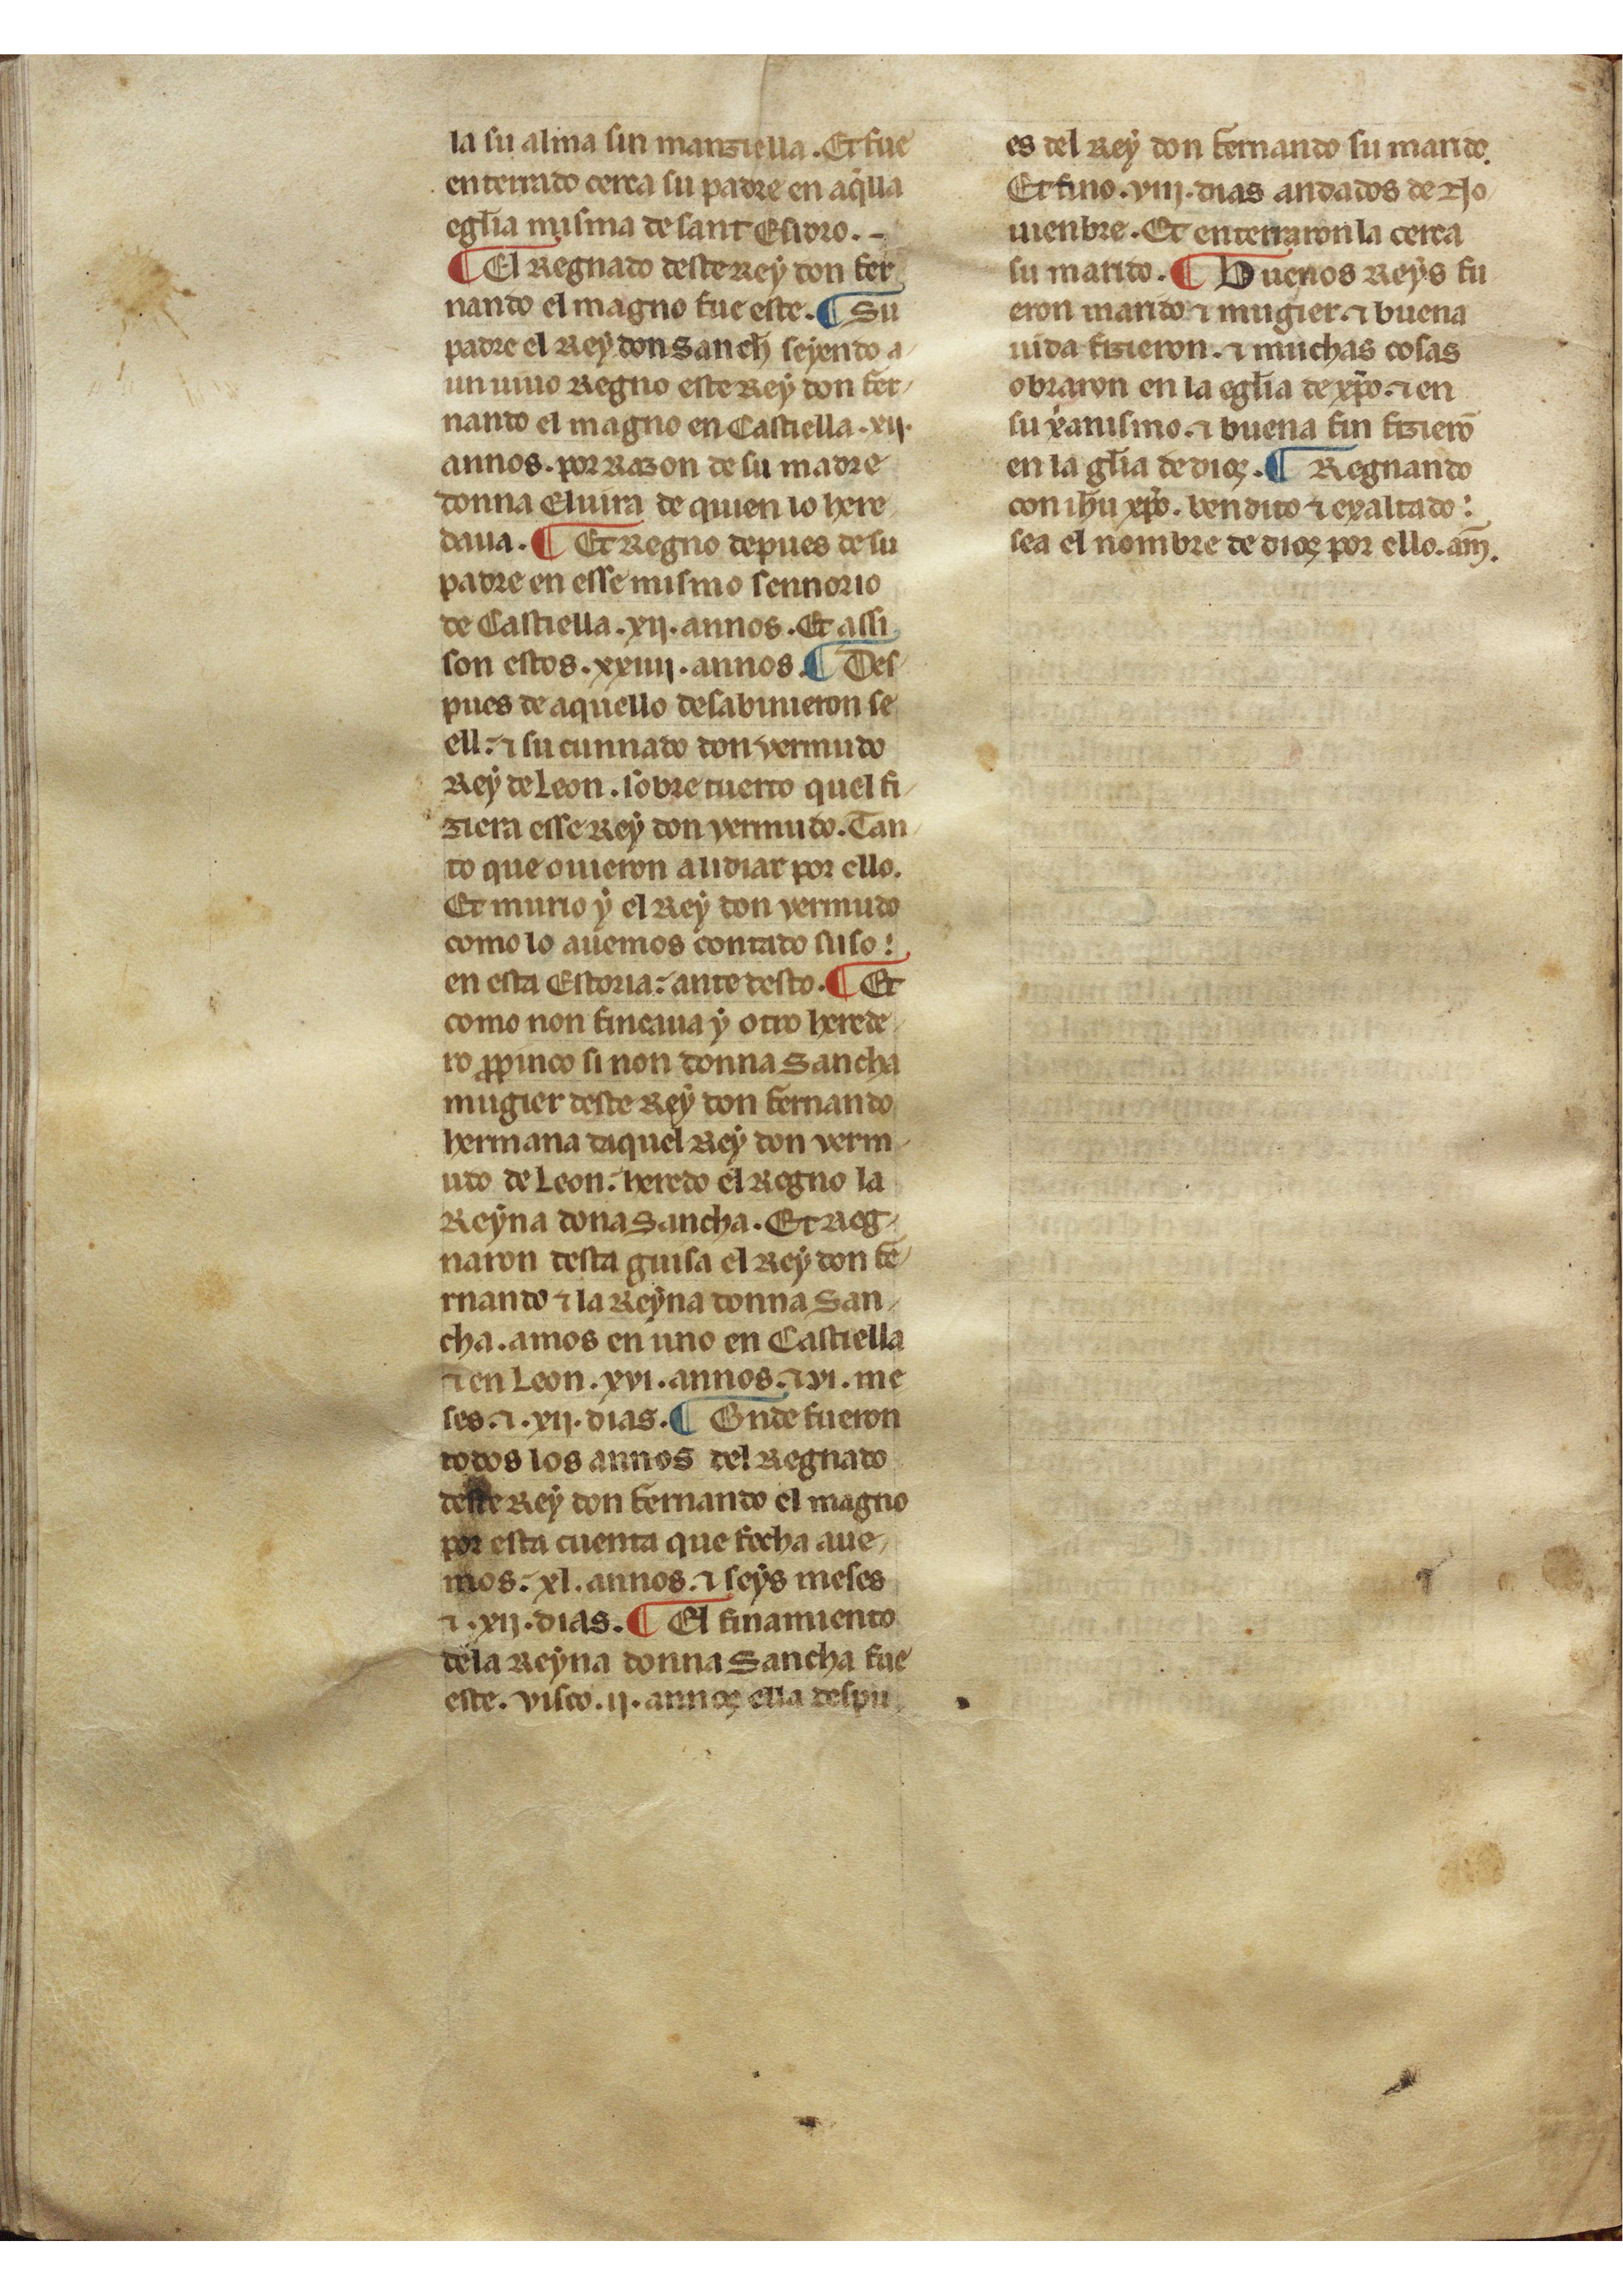 la su alma sin manziella. Et fue
enterrado cerca su padre en aq̃lla
egl̃ia misma de sant Esidro. –
¶ El Regnado deste Rey don fer
nando el magno fue este. ¶ Su
padre el Rey don Sanch̃ seyendo a-
un uiuo Regno este Rey don fer-
nando el magno en Castiella .xij.
annos. por Razon de su madre
donna Eluira de quien lo here
daua. ¶ Et Regno depues de su
padre en esse mismo sennorio
de Castiella .xij. annos. Et assi
son estos .xxiiij. annos. ¶ Des-
pues de aquello desabinieron se
ell: ⁊ su cunnado don vermudo
Rey de Leon. sobre tuerto quel fi-
ziera esse Rey don vermudo. Tan-
to que ouieron a lidiar por ello.
Et murio y el Rey don vermudo
como lo auemos contado suso:
en esta Estoria: ante desto. ¶ Et
como non fincaua y otro herede-
ro ꝓpinco si non donna Sancha
mugier deste Rey don fernando
hermana daquel Rey don verm-
udo de Leon: heredo el Regno la
Reyna dona Sancha. Et Reg-
naron desta guisa el Rey don fe-
rnando ⁊ la Reyna donna San-
cha. amos en uno en Castiella
⁊ en Leon .xvi. annos. ⁊ vi. me
ses. ⁊ .xij. dias. ¶ Onde fueron
todos los annos del Regnado
deste Rey don fernando el magno
por esta cuenta que fecha aue-
mos: xl. annos. ⁊ seys meses
⁊ .xij. dias. ¶ El finamiento
de la Reyna donna Sancha fue
este. visco .ij. annos ella despu
es del Rey don fernando su marido.
Et fino .viij. dias andados de No-
uienbre. Et enterraron la cerca
su marido. ¶ Buenos Reys fu
eron marido ⁊ mugier. ⁊ buena
uida fizieron. ⁊ muchas cosas
obraron en la egl̃ia de xp̃o. ⁊ en
su xãnismo. ⁊ buena fin fizierõ
en la gl̃ia de dios. ¶ Regnando
con ih̃u xp̃o. bendito ⁊ exaltado:
sea el nombre de dios por ello. am̃.